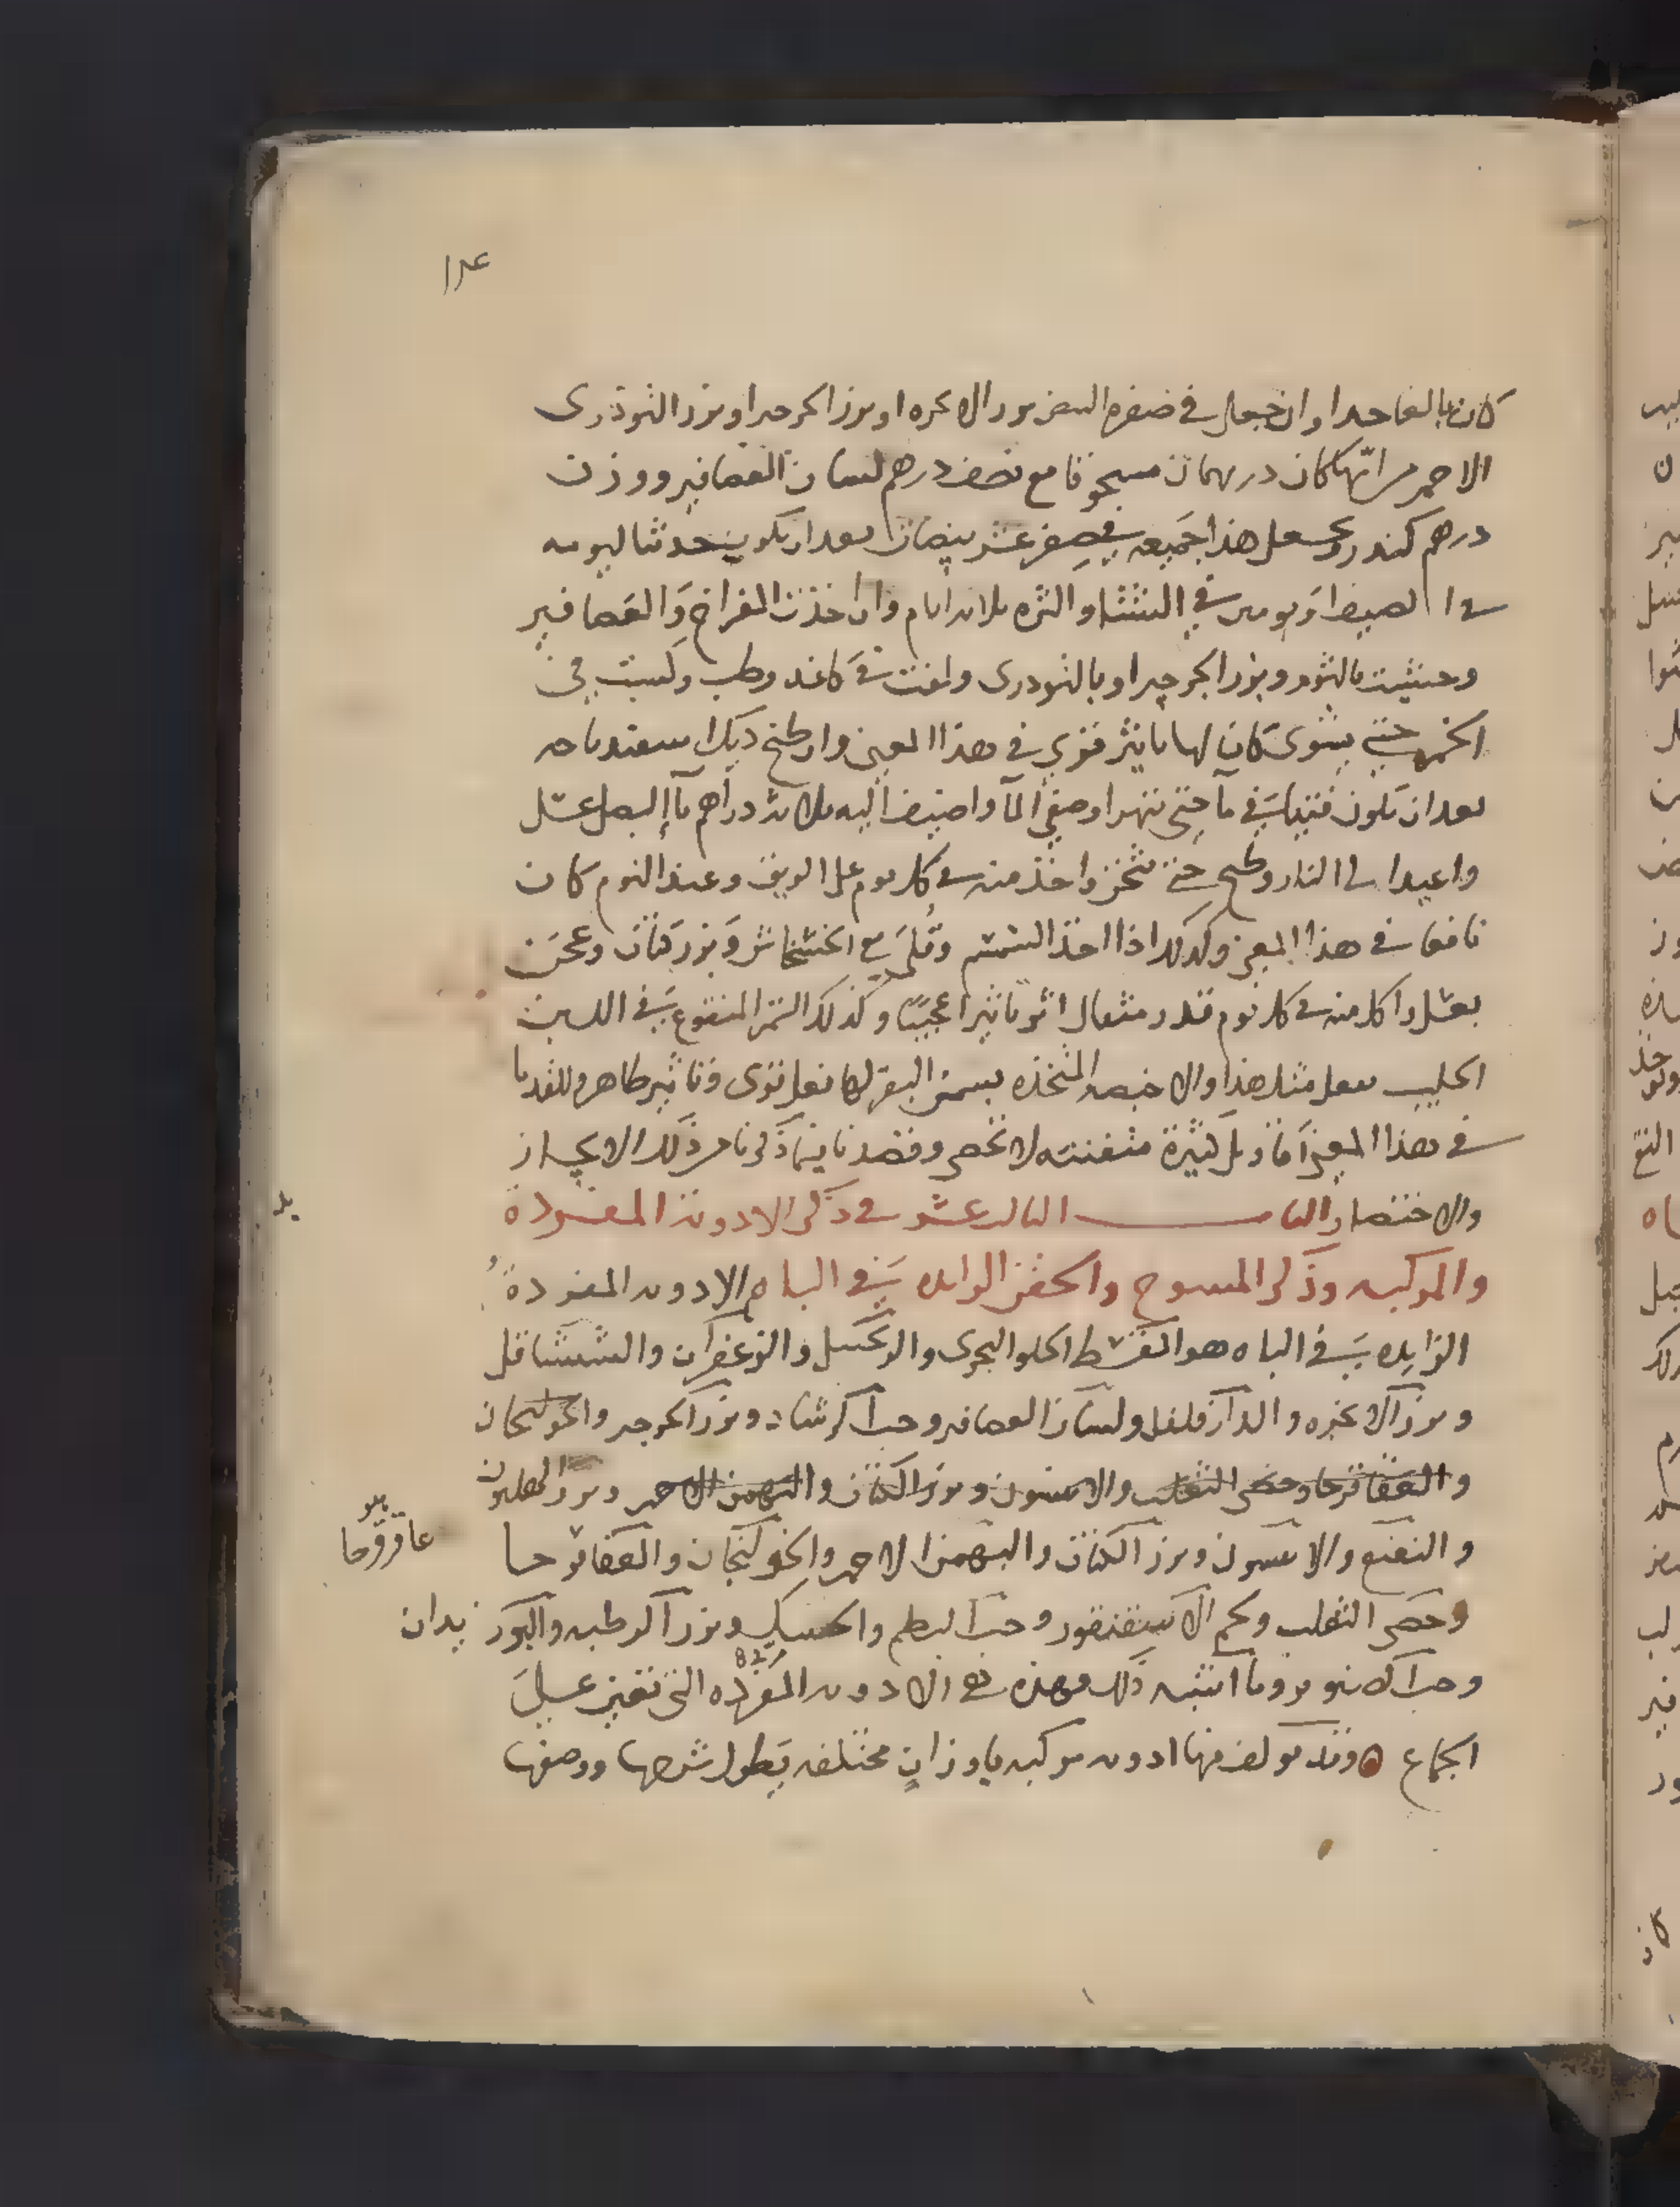 كان بالغا جدا وان جعل في صفره البيض بزر الانجره او بزر الجرجير او بزر التوذري
الاحمر من ايها كان درهمان مسحوقا مع نصف درهم لسان العصافير ووزن
درهم كندر ويجعل هذا جميعه في صفر عشر بيضات بعد ان يكون حدثا ليومه
في الصيف او يومين في الشتاء واكثره ثلاثه ايام وان اخذت الفراخ والعصافير
وحشيت بالثوم وبزر الجرجير او بالتودري ولفت في كاغد رطب وكببت في
الجمر حتى يشوى كان لها تاثير قوي في هذا المعنى وان طبخ ديك
بعد ان يكون فتيا في ما حتى تتهرا وصفي المآ واضيف اليه ثلاثه دراهم مآ البصل عسل
واعيد الى النار وطبخ حتى تثخن واخذ منه في كل يوم على الريق وعند النوم كان
نافعا في هذا المعنى وكذلك اذا اخذ السمسم وقلي مع الخشخاش وبزر كتان وعجن
بعسل واكل منه في كل يوم قدر مثقال اثر تاثيرا عجيبا وكذلك التمر المنقوع في اللبن
الحليب يفعل مثل هذا والاخبصه المتخذه بسمن البقر لها فعل قوى وتاثير ظاهر وللقدما
في هذا المعنى اقاويل كثيرة متفننه لا تحصى وقصدنا فيما ذكرنا من ذلك الايجاز
والاختصار الباب الثالث عشر في ذكر الادويه المفردة
والمركبه وذكر المسوح والحقن الزايده في الباه الادويه المفردة
الزايده في الباه هو القسط الحلو البحري والزنجبيل والزعفران والشقاقل
وبزر الانجره والدارفلفل ولسان العصافير وحب الرشاد وبزر الجرجير والخولنجان
والعقاقرحا وخصى الثعلب والانيسون وبزر الكتان والبهمن الاحمر وبزر الهليون
والنعنع والانيسون وبزر الكتان والبهمن الاحمر والخولنجان والعقاقرحا
عاقرقرحا
وخصى الثعلب ولحم الاسقنقور وحب البطم والحسك وبزر الرطبه والبوزيدان
وحب الصنوبر وما اشبه ذلك فهذه هي الادويه المفرده التي تعين على
الجماع وقد تولف منها ادويه مركبه باوزان مختلفه يطول شرحها ووصفها